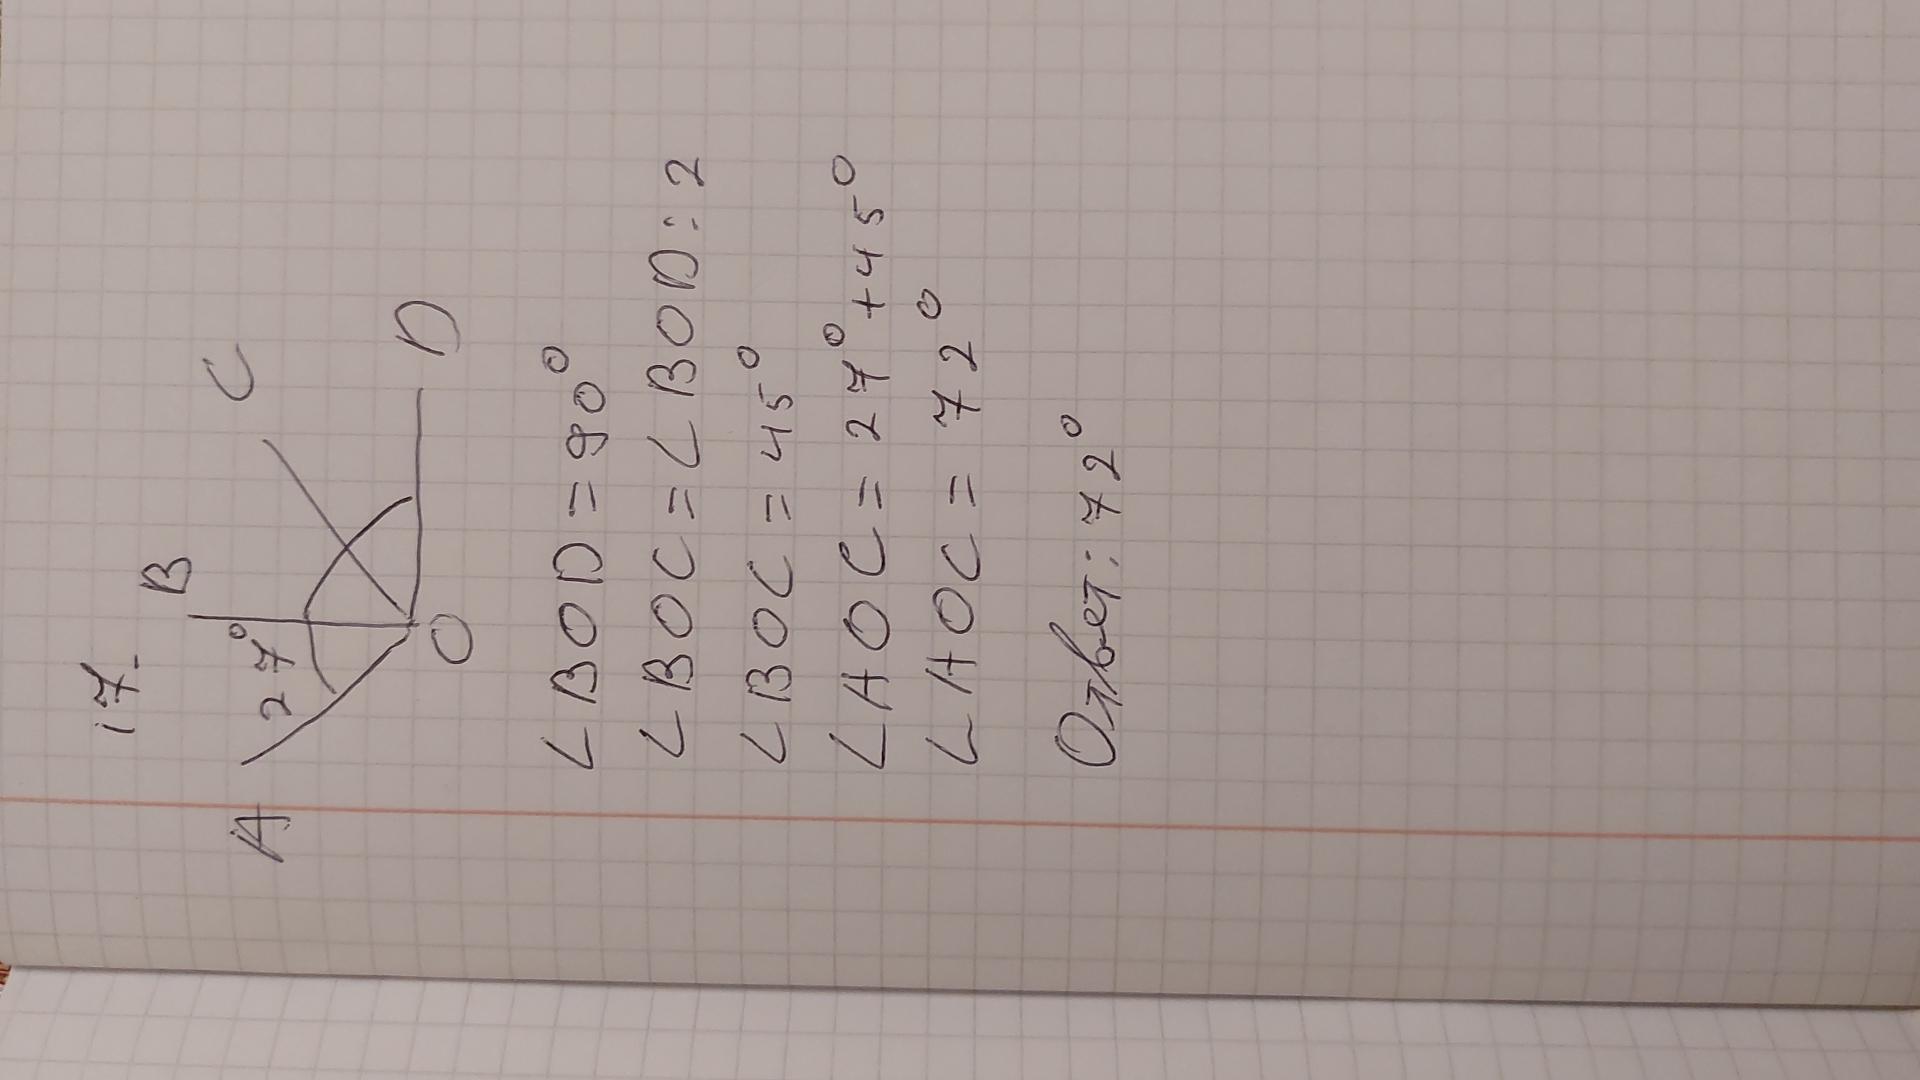 17.
B
C
27°
A
O
D
∠BOD = 90°
∠BOC = ∠BOD : 2
∠BOC = 45°
∠AOC = 27° + 45°
∠AOC = 72°
Ответ: 72°